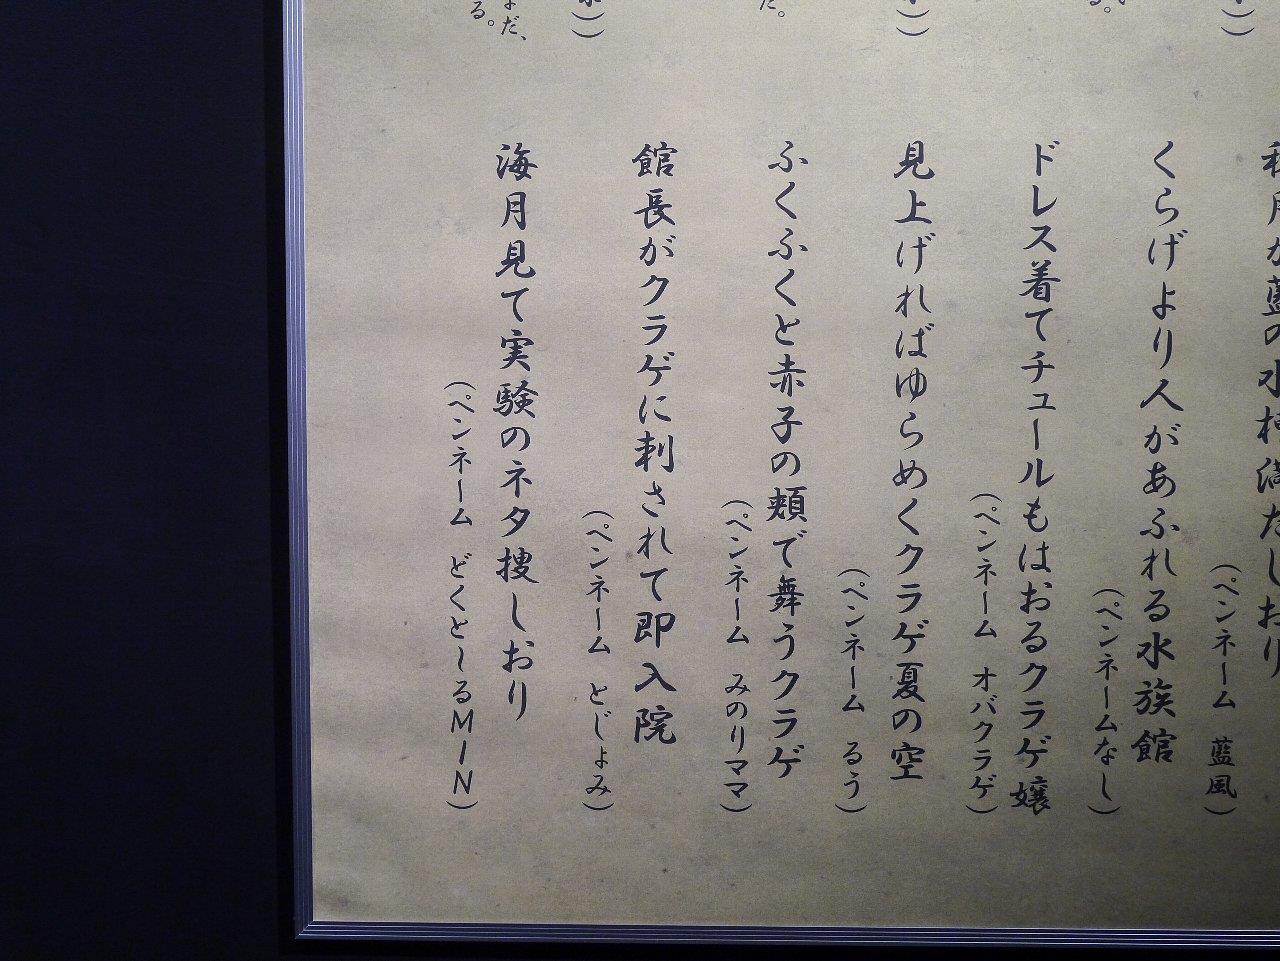 くらげより人があふれる水族館
(ペンネームなし)
ドレス着てチュールもはおるクラゲ嬢
(ペンネーム オバクラゲ)
見上げればゆらめくクラゲ夏の空
(ペンネーム るう)
ふくふくと赤子の頬で舞うクラゲ
(ペンネーム みのりママ)
館長がクラゲに刺されて即入院
(ペンネーム とじょみ)
海月見て実験のネタ捜しおり
(ペンネーム どくとーるMIN)
(ペンネーム 藍風)